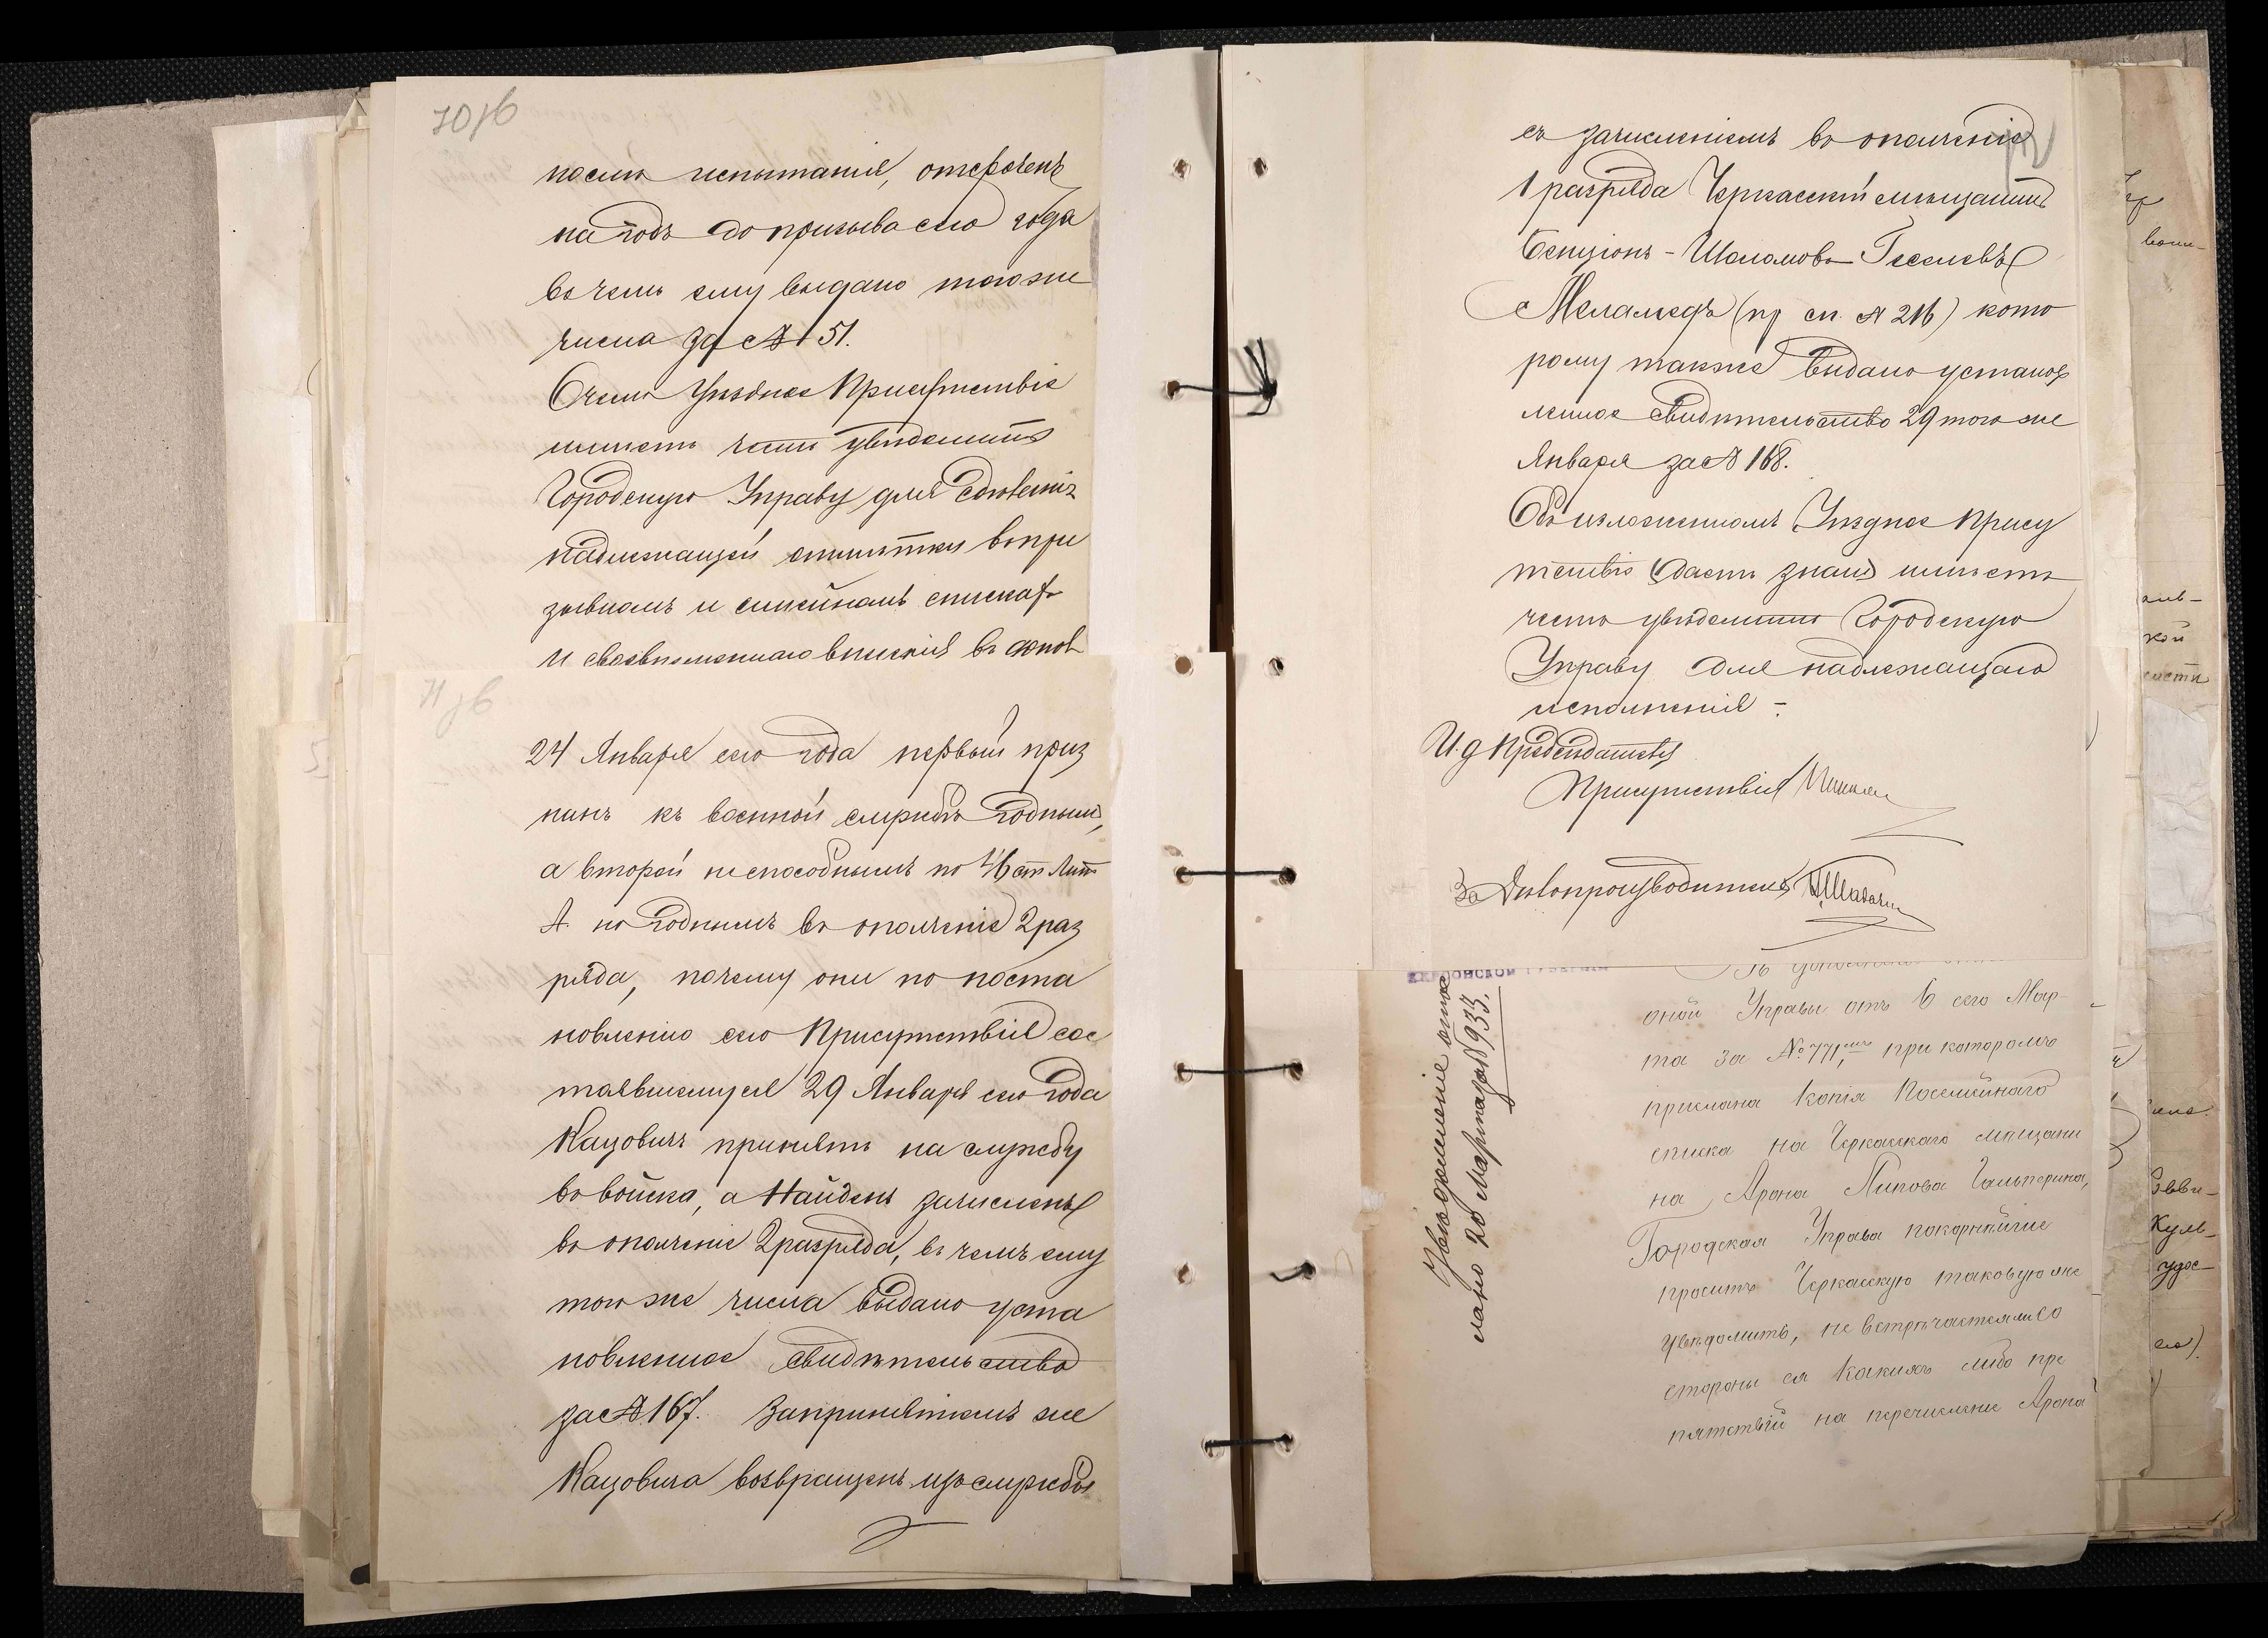 70 об
после испытанія, отсрочен
на годъ до призыва сего года
въ чемъ ему выдано того же
числа за № 51.
О чемъ Уѣздное Присутствіе
имѣетъ честь увѣдомить
Городскую Управу для сдѣланія
надлежащей отмѣтки въ при
зывномъ и семейномъ спискахъ
и своевременнаго внесенія въ допол
71 об
24 Января сего года первый приз
нанъ къ военной службѣ годнымъ,
а второй неспособнымъ по 46 ст Лит
А. но годнымъ въ ополченіе 2 раз
ряда, почему они по поста
новленію сего Присутствія сос
тоявшемуся 29 Января сего года
Кацовичъ принятъ на службу
въ войска, а Найденъ зачисленъ
въ ополченіе 2 разряда, въ чемъ ему
того же числа выдано уста
новленное свидѣтельство
за № 167. За принятіемъ же
Кацовича возвращенъ изъ службы
съ зачисленіемъ въ ополченіе
1 разряда Черкасскій мѣщанинъ
Бенціонъ-Шоломовъ Геселевъ
Меламедъ (пр сп. № 216) кото
рому также выдано установ
ленное свидѣтельство 29 того же
Января за № 168.
Объ изложенномъ Уѣздное Присут
ствіе даетъ знать имѣетъ
честь увѣдомить Городскую
Управу для надлежащаго
исполненія -
И. д Предсѣдателя
Присутствія
За Дѣлопроизводителя
ХЕРСОНСКОЙ ГУБЕРНІИ
оной Управы отъ 6 сего Мар-
та за № 771, при которомъ
прислана копія Посемейнаго
списка на Черкасскаго мѣщани
на Арона Липова Гальперина,
Городская Управа покорнѣйше
проситъ Черкасскую таковую же
увѣдомить, не встрѣчается ли со
стороны ея какихъ либо пре
пятствій на перечисленіе Арона
Увѣдомленіе
лано 20 Марта за № 933.